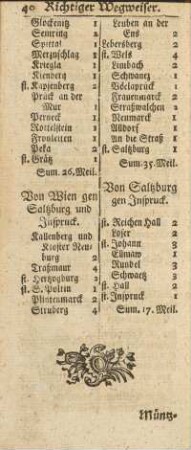 40 Richtiger Wegweiser.
Glocknitz 1
Semring 2
Spittal 1
Merzuschlag 1
Kriegla 1
Kienberg 1
st. Kapfenberg 2
Prück an der
Mur 1
Perneck 1
Rottelstein 1
Fronleiten 1
Peka 2
st. Grätz 1
Sum. 26. Meil.
Von Wien gen
Saltzburg und
Inspruck.
Kallenberg und
Kloster Neu-
burg 2
Traßmaur 4
st. Hertzogburg 1
st. S. Poltin 1
Plintenmarck 2
Struberg 4
Leuben an der
Ens 2
Lebersberg 2
st. Wels 4
Limbach 2
Schwantz 1
Vöclapruck 1
Frauenmarck 2
Straßwalchen 2
Neumarck 1
Alldorf 1
An die Straß 1
st. Saltzburg 1
Sum. 35. Meil.
Von Saltzburg
gen Inspruck.
st. Reichen Hall 2
Lofer 2
st. Johann 3
Elmaw 1
Rundel 3
Schwartz 3
st. Hall 2
st. Inspruck 1
Sum. 17. Meil.
Müntz-